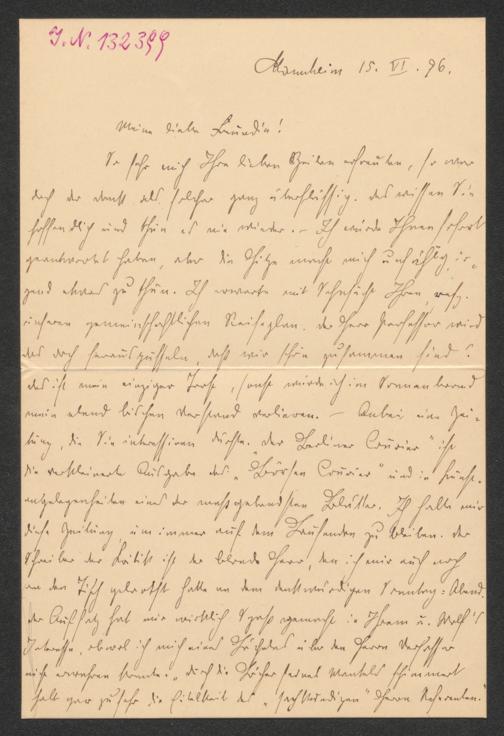 I. N. 132399
Mannheim 15. VI. 96.
Meine liebe Freundin!
So sehr mich Ihre lieben Zeilen erfreuten, so war
doch der Dank als solcher ganz überflüssig. Das wissen Sie
hoffendlich und thun es nie wieder. – Ich würde Ihnen sofort
geantwortet haben, aber die Hitze macht mich unfähig ir-
gend etwas zu thun. Ich erwarte mit Sehnsucht Ihren, resp.
unseren gemeinschaftlichen Reiseplan. Der Herr Professor wird
das doch herausgüsseln, daß wir schön zusammen sind?
Das ist mein einziger Trost, sonst würde ich im Sonnenbrand
mein elend bischen Verstand verlieren. – Anbei eine Zei-
tung, die Sie interessiren dürfte. "Der Berliner Courier" ist
die verkleinerte Ausgabe des "Börsen Courier" und in Kunst-
angelegenheiten eines der maßgebendsten Blätter. Ich halte mir
diese Zeitung, um immer auf dem Laufenden zu bleiben. Der
Schreiber der Kritik ist der blonde Herr, den ich mir auch noch
an den Tisch gelootst hatte an dem denkwürdigen Sonntag-Abend.
Der Aufsatz hat mir wirklich Spaß gemacht in Ihrem u. Wolf's
Interesse, obwol ich mich eines Lächelns über den Herrn Verfasser
nicht erwehren konnte. "Durch die Löcher seines Mantels schimmert
halt gar zu sehr die Eitelkeit des "sachkundigen" Herrn Referenten."